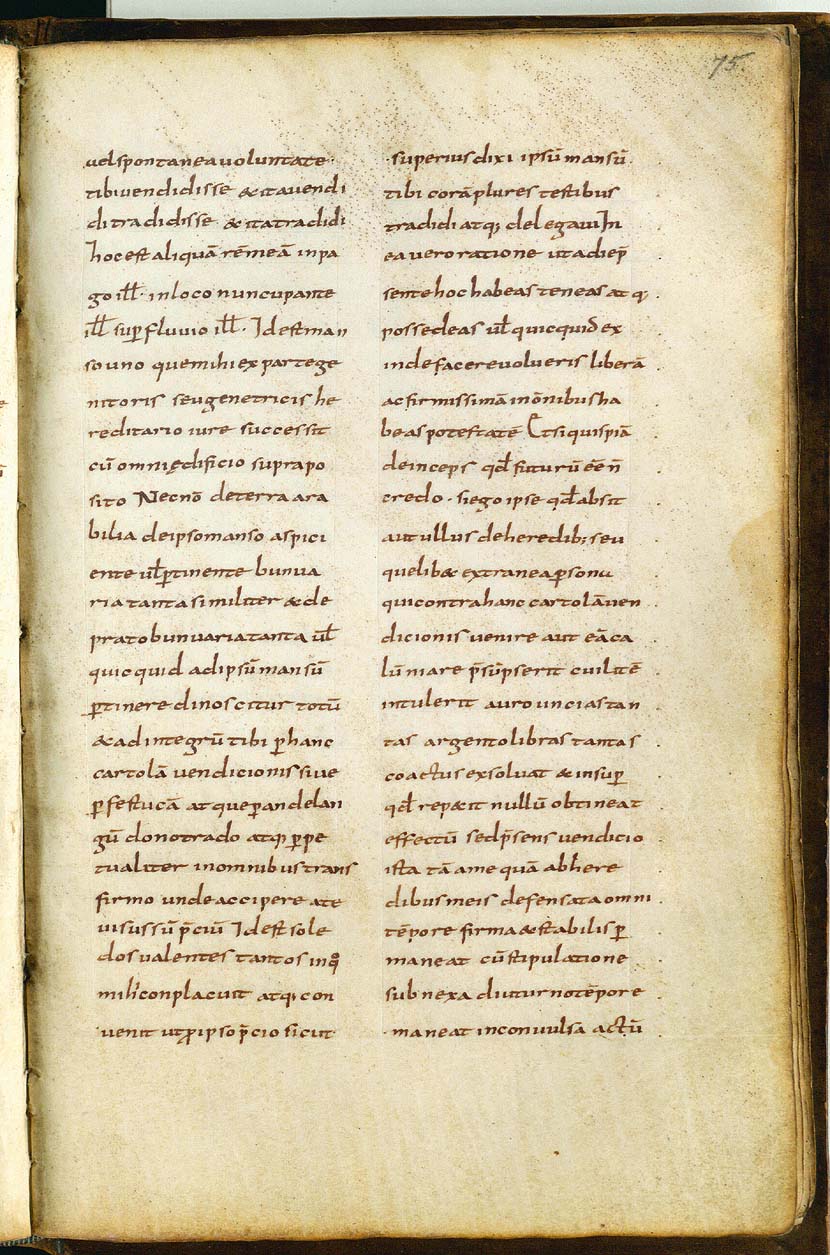 75.
uel spontanea uoluntate·
tibi uendidisse & ita uendi
di tradidisse & ita tradidi
hoc est aliquā rēmeā inpa
go ill̅· in loco nuncupante
ill̅ sup̱ fluuio ill̅· Id est man
so uno quemihi ex parte ge
nitoris seu genetricis he
reditario iure successit
cū omni ędificio suprapo
sito Necnō deterra ara
bilia deipso manso aspici
ente ul̅ p̱tinente bunua
ria tanta similiter & de
prato bunuaria tanta ul̅
quicquid adipsū mansū
p̱tinere dinoscitur totū
& ad integrū tibi p̱ hanc
cartolā uendicionis siue
p̱ festucā atque p̱ andelan
gū dono trado atq; p̱pe
tualiter in omnibus trans
firmo unde accipere ate
uisus sū p̄ciū Id est sole
dos ualentes tantos inqͦ
mihi conplacuit atq; con
uenit ut ꝓ ipso p̄cio sicut
superius dixi ipsū mansū
tibi corā plures testibus
tradidi atq; delegaui In
ea uero ratione ut adiep̄
sente hoc habeas teneas atq;
possedeas ul̅ quicquid ex
inde facere uolueris liberā
ac firmissimā inōnibus ha
beas potestatē Et si quispiā
deinceps qd̅ futurū eē n̄
credo· si ego ipse qd̅ absit
aut ullus de heredib; seu
quelib& extranea p̱sona
qui contra hanc cartolā uen
dicionis uenire aut eā ca
lūniare p̄sūpserit cui litē
intulerit auro uncias tan
tas argento libras tantas
coactus exsoluat & insup̱
qd̅ rep&it nullū obtineat
effectū sed p̄sens uendicio
ista tā ame quā abhere
dibus meis defensata omni
tēpore firma & stabilis p̱
maneat cū stipulatione
subnexa diuturno tēpore
maneat inconuulsa actū